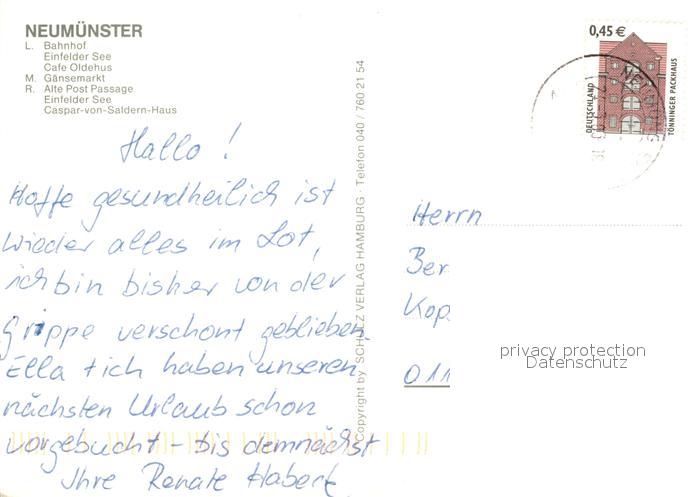 NEUMÜNSTER
L. Bahnhof
Einfelder See
Cafe Oldehus
M. Gänsemarkt
R. Alte Post Passage
Einfelder See
Caspar-von-Saldern-Haus
Hallo!
Hoffe gesundheitlich ist
wieder alles im Lot,
ich bin bisher von der
Grippe verschont geblieben.
Ella + ich haben unseren
nächsten Urlaub schon
vorgebucht - bis demnächst
Ihre Renate Habeck
Copyright by SCHULZ VERLAG HAMBURG · Telefon 040 / 760 21 54
0,45 €
DEUTSCHLAND
TÖNNINGER PACKHAUS
Herrn
Ber
Kop
011
privacy protection
Datenschutz